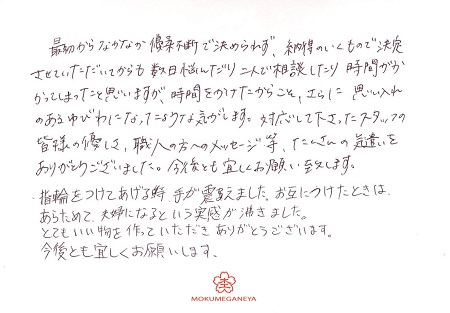 最初からなかなか優柔不断で決められず、納得のいくもので決定
させていただいてからも数日悩んだり二人で相談したり時間がか
かってしまったと思いますが、時間をかけたからこと、さらに思い入れ
のあるゆびわになったような気がします。対応して下さったスタッフの
皆様の優しさ、職人の方へのメッセージ等、たくさんの気遣いを
ありがとうございました。今後とも宜しくお願い致します。
・指輪をつけてあげる時、手が震えました。お互につけたときは、
あらためて、夫婦になるという実感が沸きました。
とてもいい物を作っていただきありがとうございます。
今後とも宜しくお願いします、
MOKUMEGANEYA